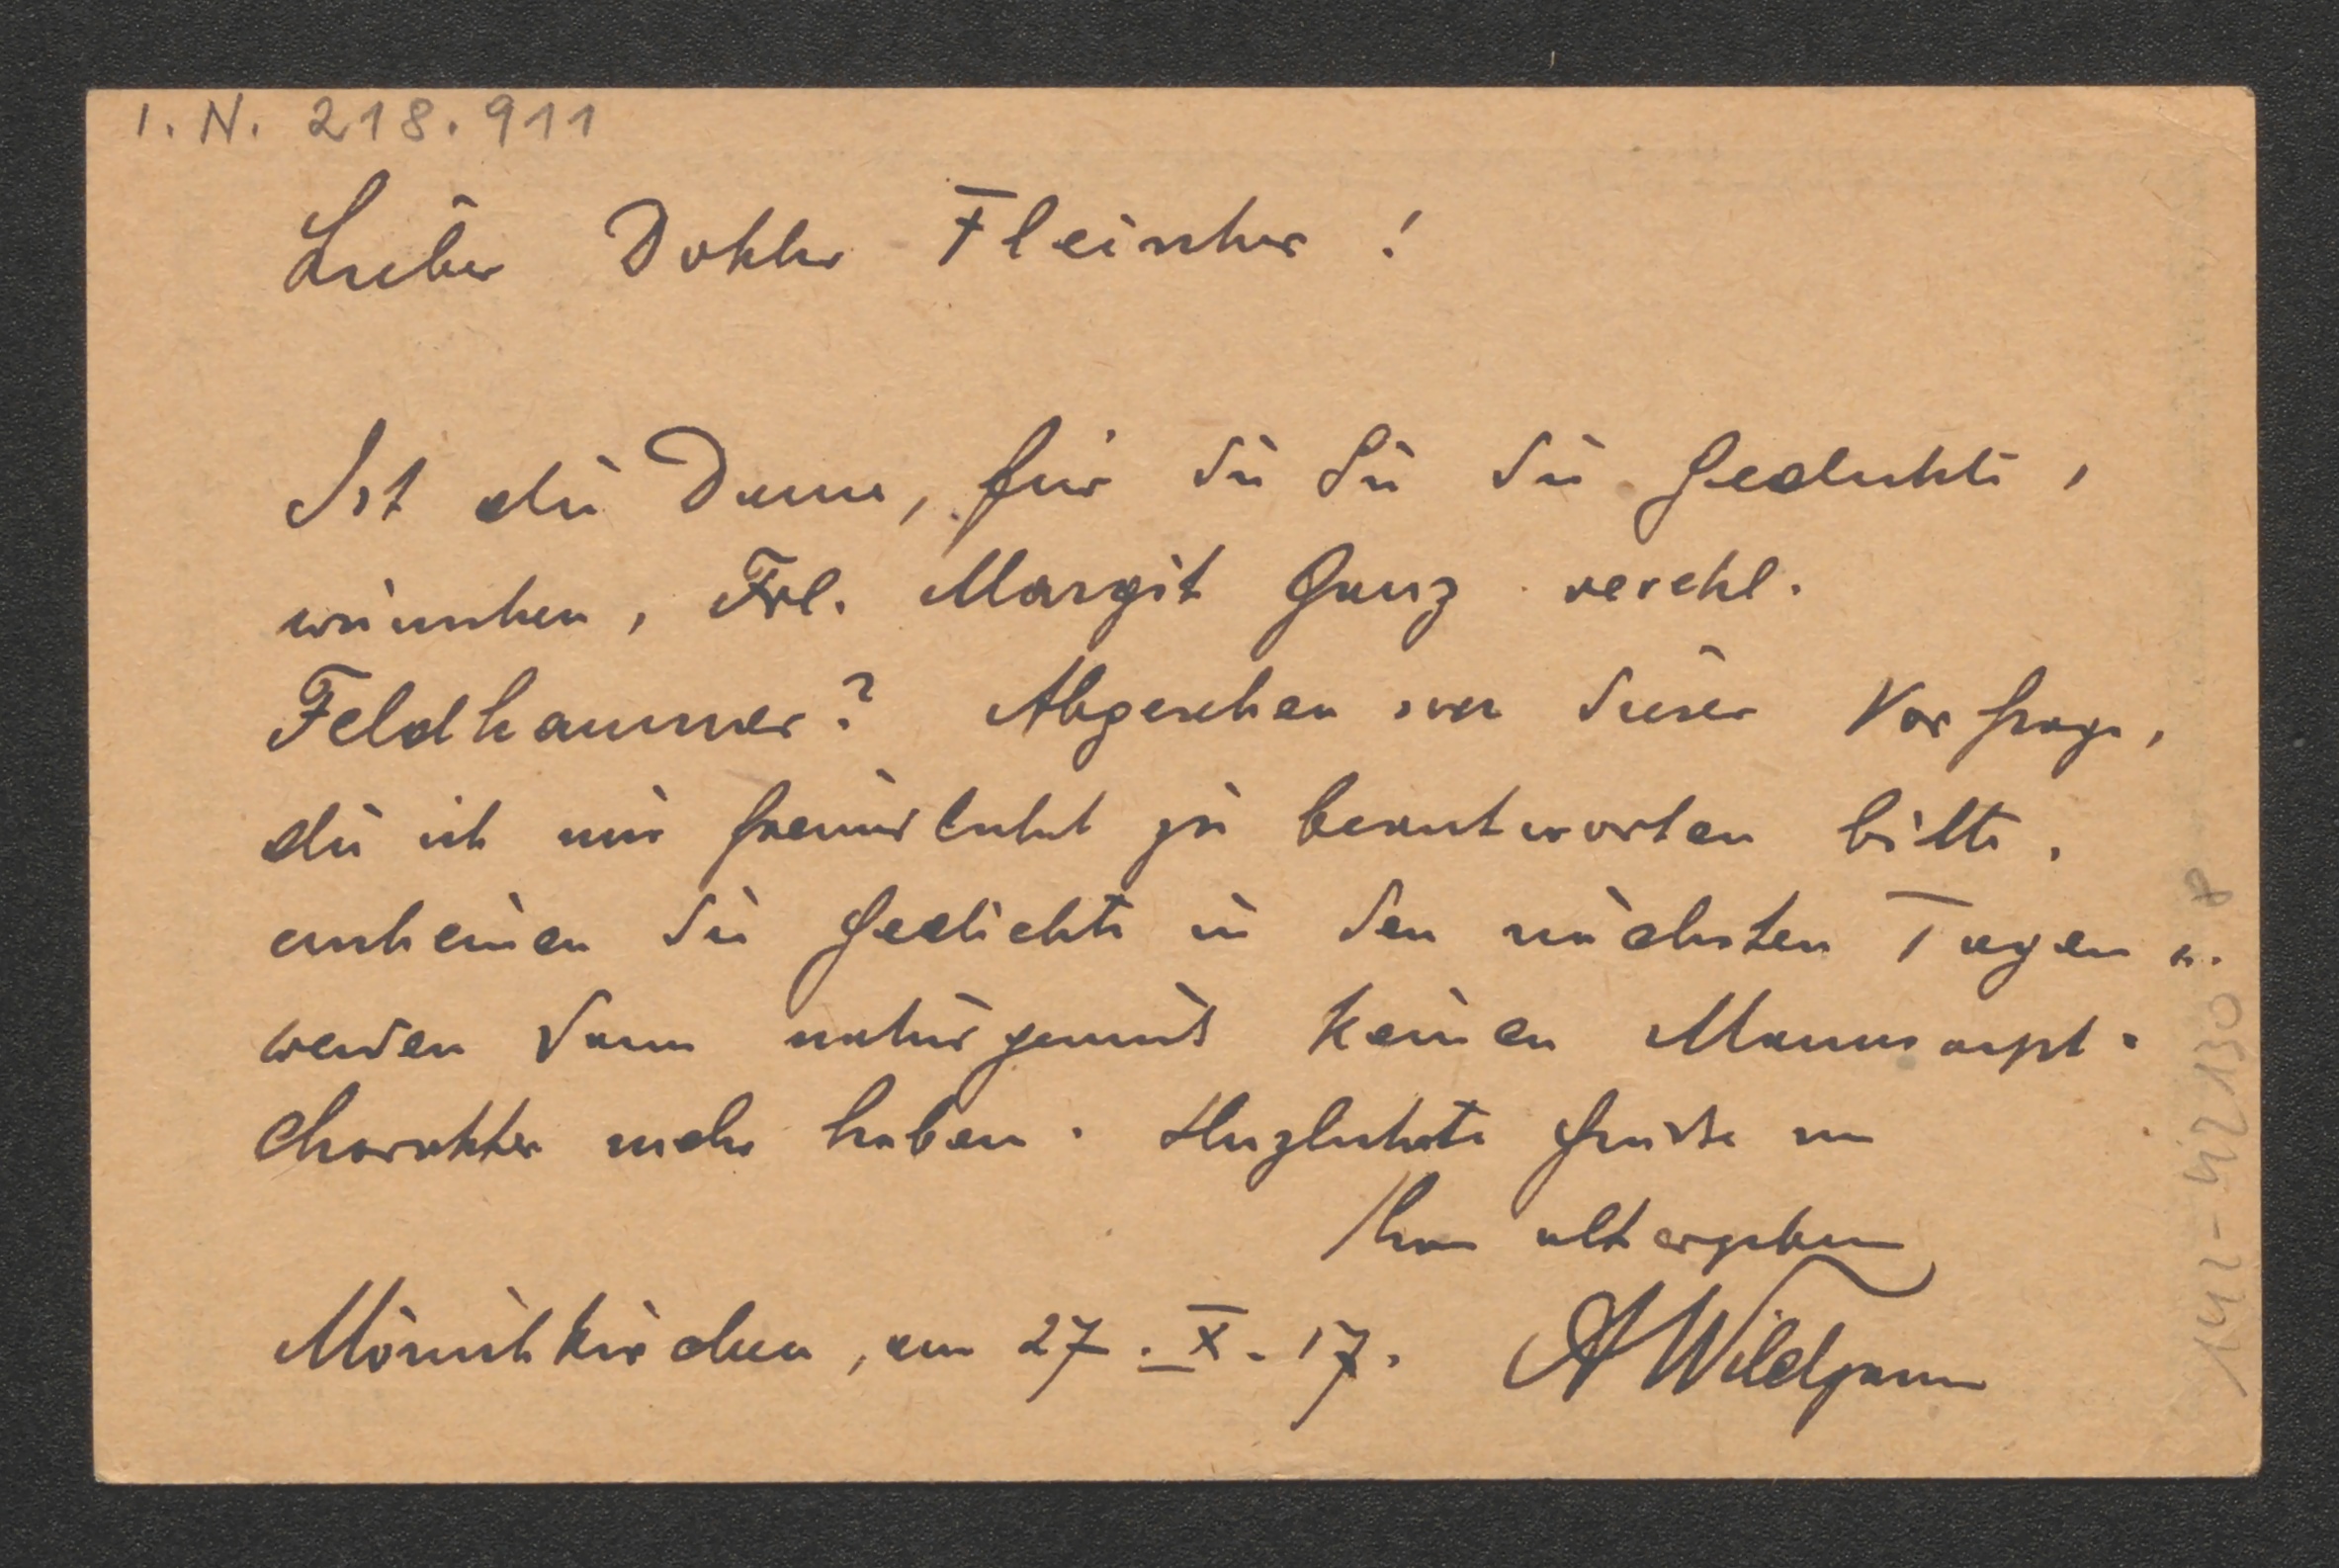 I. N. 218.911
Lieber Doktor Fleischer!
Ist die Dame, für die Sie die Gedichte,
wünschen, Frl. Margit Ganz verehl.
Feldhammer? Abgesehen von dieser Vorfrage,
die ich mir freundlichst zu beantworten bitte,
erscheinen die Gedichte in den nächsten Tagen u.
werden dann naturgemäß keinen Manuscript-
Charakter mehr haben. Herzlichste Grüße von
Ihrem altergebenen
Mönichkirchen, am 27.X.17. A Wildgans